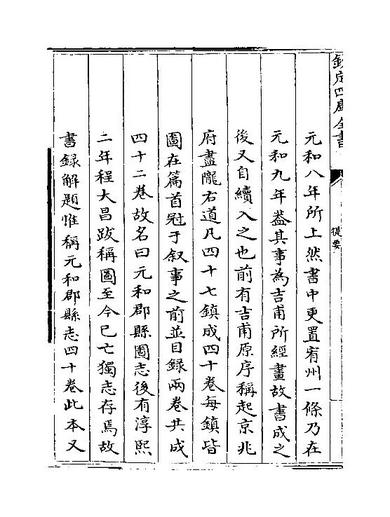 欽定四庫全書
提要
元和八年所上然書中更置宥州一條乃在
元和九年蓋其事為吉甫所經畫故書成之
後又自續入之也前有吉甫原序稱起京兆
府盡隴右道凡四十七鎮成四十卷每鎮皆
圖在篇首冠于叙事之前並目録兩卷共成
四十二卷故名曰元和郡縣圖志後有淳熙
二年程大昌跋稱圖至今已亡獨志存焉故
書録解題惟稱元和郡縣志四十卷此本又